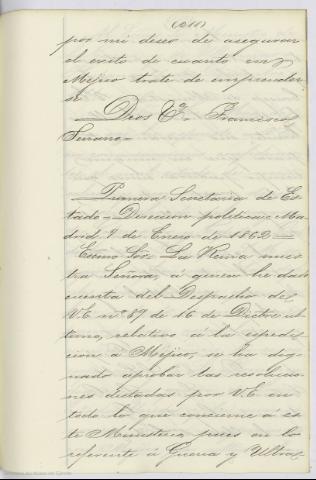 (211)
por mi deseo de asegurar
el exito de cuanto en
Mejico trate de emprender
se
Dios &a. Francisco
Serrano=
Primera Secretaria de Es
tado= Direccion politica= Ma
drid 9 de Enero de 1862=
Excmo Sor. La Reina nues
tra Señora, á quien he dado
cuenta del Despacho de
V.E. nº 89 de 16 de Dicbre. ul
timo, relativo á la espedi
cion á Mejico, se ha dig
nado aprobar las resolucio
nes dictadas por V.E. en
todo lo que concierne á es
te Ministerio pues en lo
referente á Guerra y Ultra